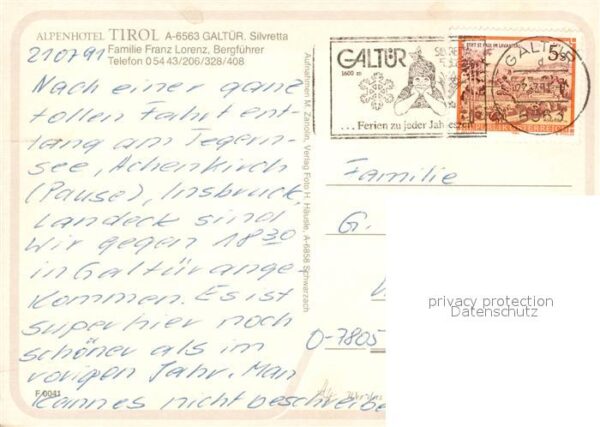 ALPENHOTEL TIROL A-6563 GALTÜR. Silvretta
Familie Franz Lorenz, Bergführer
Telefon 05443/206/328/408
210791
Nach einer ganz
tollen Fahrt ent-
lang am Tegern-
see, Achenkirch
(Pause), Insbruck,
Landeck sind
wir gegen 18 30
in Galtür ange-
kommen. Es ist
super hier noch
schöner als im
vorigen Jahr. Man
kann es nicht beschreibe
F 0041
Aufnahmen M. Zangerl, Verlag Foto H. Häusle, A-6858 Schwarzach
GALTÜR
1600 m
... Ferien zu jeder Jahreszeit
STIFT ST. PAUL IM LAVANTTAL
5S
REPUBLIK ÖSTERREICH
GALTÜR
6563
Familie
G.
O-7805
privacy protection
Datenschutz